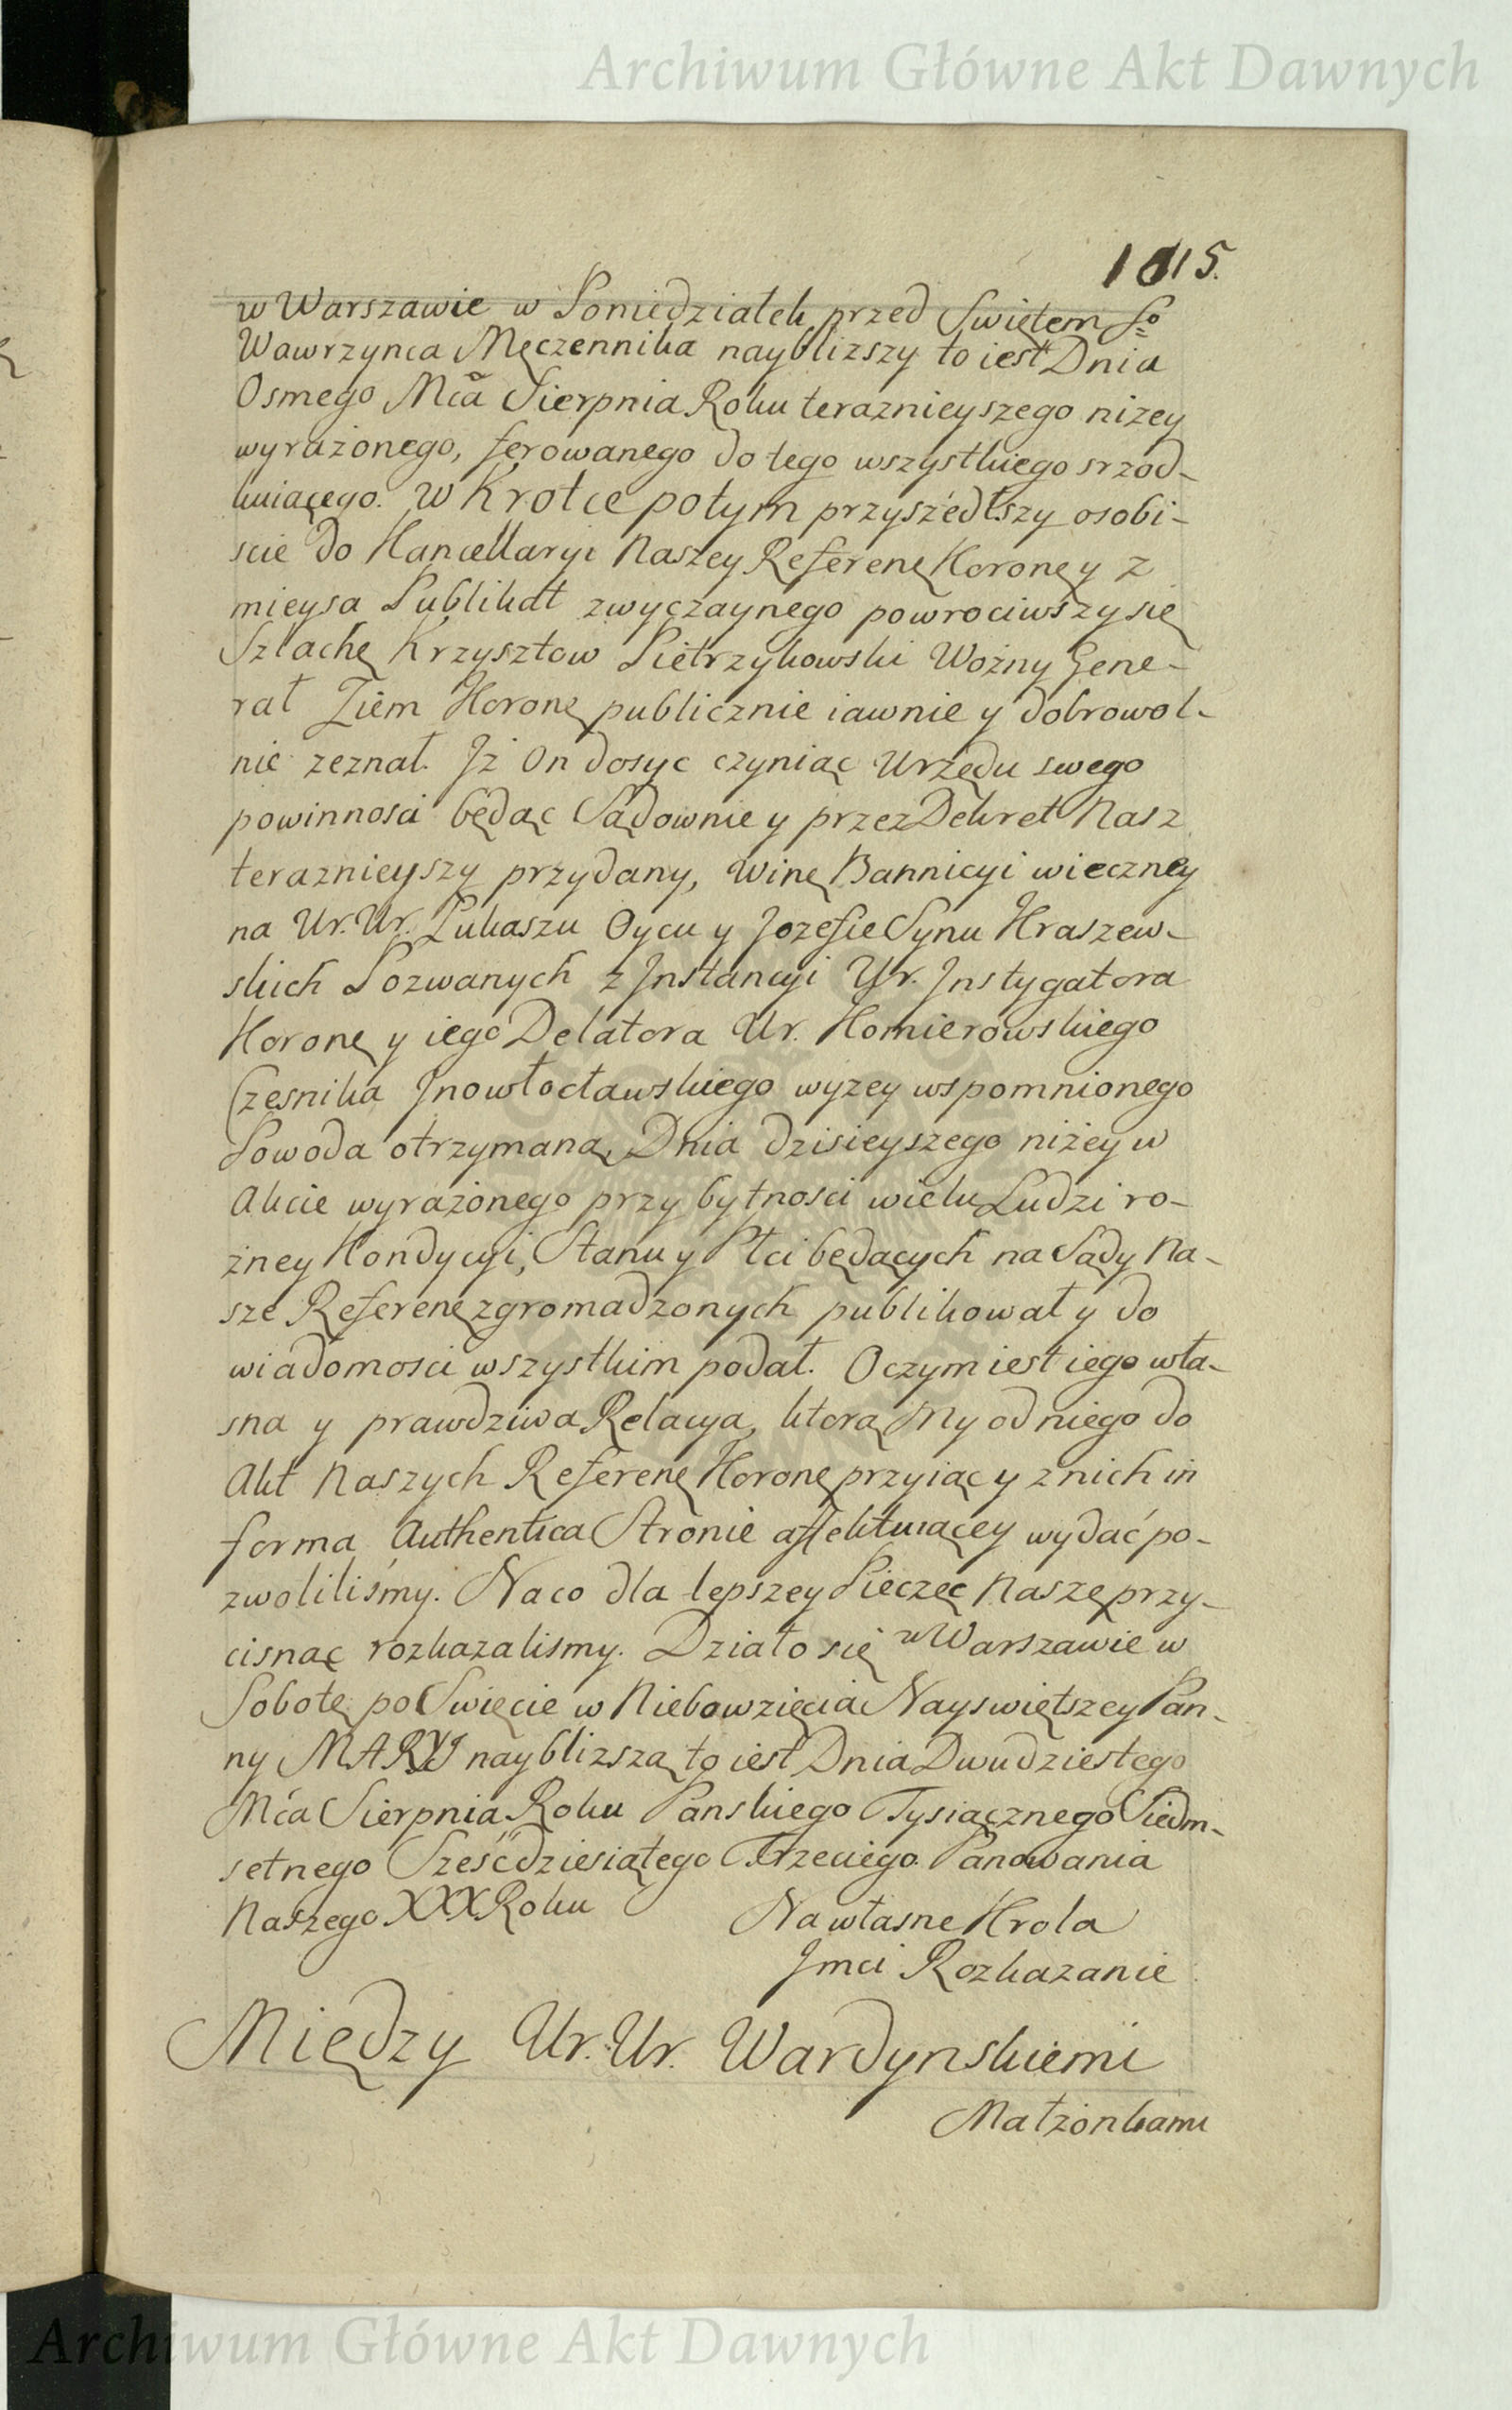 Archiwum Główne Akt Dawnych
1015.
w Warszawie w Poniedziałek przed Swiętem So
Wawrzynca Męczennika nayblizszy to iest Dnia
Osmego Mca Sierpnia Roku teraznieyszego nizey
wyrażonego, ferowanego do tego wszystkiego srzod-
kuiącego. W Krotce potym przyszedłszy osobi-
scie do Kancellaryi Naszey Referenę Koroney z
mieysa Publikat zwyczaynego powrociwszy się
Szlachę Krzysztow Pietrzykowski Woźny Gene-
rał Ziem Koronę publicznie iawnie y dobrowol-
nie zeznał. Jż On dosyc czyniąc Urzędu swego
powinnosci będąc Sądownie y przez Dekret Nasz
teraznieyszy przydany, Winę Bannicyi wieczney
na Ur. Ur. Łukaszu Oycu y Jozefie Synu Kraszew-
skich Pozwanych z Jnstancyi Ur. Jnstygatora
Koronę y iego Delatora Ur. Komierowskiego
Czesnika Jnowłocławskiego wyzey wspomnionego
Powoda otrzymaną, Dnia dzisieyszego niżey w
Akcie wyrażonego przy bytnosci wielu Ludzi ro-
żney Kondycyi, Stanu y Płci będących na Sądy Na-
sze Referenę zgromadzonych publikował y do
wiadomosci wszystkim podał. O czym iest iego wła-
sna y prawdziwa Relacya, ktorą My od niego do
Akt Naszych Referenę Koronę przyiąc y z nich in
forma Authentica Stronie affektuiącey wydać po-
zwoliliśmy. Na co dla lepszey Pieczęc Naszę przy-
cisnąc rozkazalismy. Działo się w Warszawie w
Sobotę po Swięcie w Niebowzięcia Nayswiętszey Pan-
ny MARYJ nayblizszą to iest Dnia Dwudziestego
Mca Sierpnia Roku Panskiego Tysiącznego Siedm-
setnego Sześćdziesiątego Trzeciego. Panowania
Naszego XXX Roku
Na własne Krola
Jmci Rozkazanie
Między Ur. Ur. Wardynskiemi
Małżonkami
Archiwum Główne Akt Dawnych